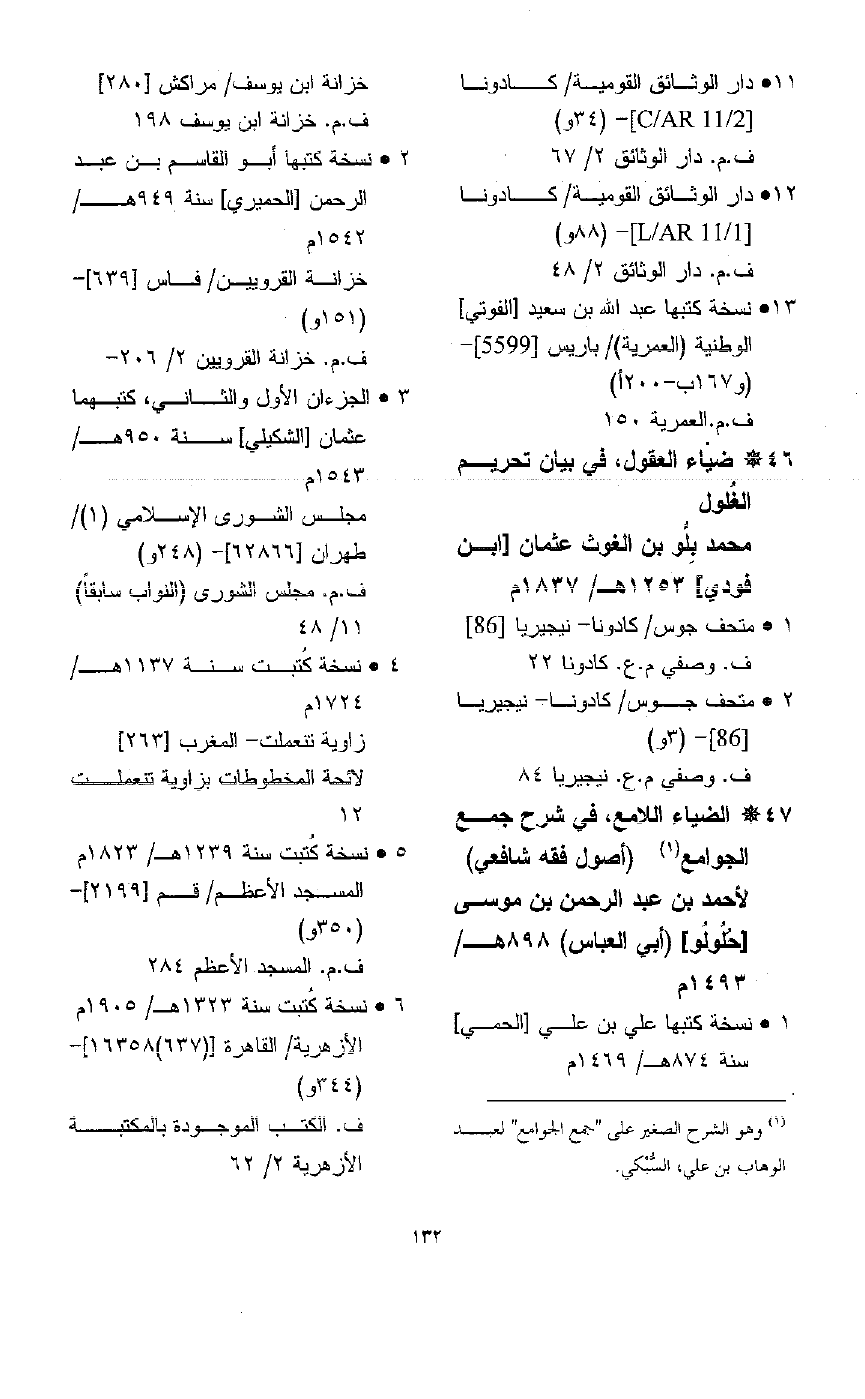 ١١• دار الوثائق القومية/ كادونا
[C/AR 11/2]- (٣٤و)
ف.م. دار الوثائق ٢/ ٦٧
١٢• دار الوثائق القومية/ كادونا
[L/AR 11/1]- (٨٨و)
ف.م. دار الوثائق ٢/ ٤٨
١٣• نسخة كتبها عبد الله بن سعيد [الفوتي]
الوطنية (العمرية)/ باريس [5599]-
(و١٦٧ب-٢٠٠أ)
ف.م.العمرية ١٥٠
٤٦* ضياء العقول، في بيان تحريم
الغُلول
محمد بِلُّو بن الغوث عثمان [ابن
فودي] ١٢٥٣هـ/ ١٨٣٧م
١ • متحف جوس/ كادونا- نيجيريا [86]
ف. وصفي م.ع. كادونا ٢٢
٢ • متحف جوس/ كادونا- نيجيريا
[86]- (٣و)
ف. وصفي م.ع. نيجيريا ٨٤
٤٧* الضياء اللامع، في شرح جمع
الجوامع(١) (أصول فقه شافعي)
لأحمد بن عبد الرحمن بن موسى
[حُلُولُو] (أبي العباس) ٨٩٨هـ/
١٤٩٣م
١ • نسخة كتبها علي بن علي [الحمي]
سنة ٨٧٤هـ/ ١٤٦٩م
(١) وهو الشرح الصغير على "جمع الجوامع" لعبد
الوهاب بن علي، السُّبْكي.
خزانة ابن يوسف/ مراكش [٢٨٠]
ف.م. خزانة ابن يوسف ١٩٨
٢ • نسخة كتبها أبو القاسم بن عبد
الرحمن [الحميري] سنة ٩٤٩هـ/
١٥٤٢م
خزانة القرويين/ فاس [٦٣٩]-
(١٥١و)
ف.م. خزانة القرويين ٢/ ٢٠٦-
٣ • الجزءان الأول والثاني، كتبهما
عثمان [الشكيلي] سنة ٩٥٠هـ/
١٥٤٣م
مجلس الشورى الإسلامي (١)/
طهران [٦٢٨٦٦]- (٢٤٨و)
ف.م. مجلس الشورى (النواب سابقاً)
١١/ ٤٨
٤ • نسخة كُتبت سنة ١١٣٧هـ/
١٧٢٤م
زاوية تنعملت- المغرب [٢٦٣]
لائحة المخطوطات بزاوية تنعملت
١٢
٥ • نسخة كُتبت سنة ١٢٣٩هـ/ ١٨٢٣م
المسجد الأعظم/ قم [٢١٩٩]-
(٣٥٠و)
ف.م. المسجد الأعظم ٢٨٤
٦ • نسخة كُتبت سنة ١٣٢٣هـ/ ١٩٠٥م
الأزهرية/ القاهرة [(٦٣٧)١٦٣٥٨]-
(٣٤٤و)
ف. الكتب الموجودة بالمكتبة
الأزهرية ٢/ ٦٢
١٣٢